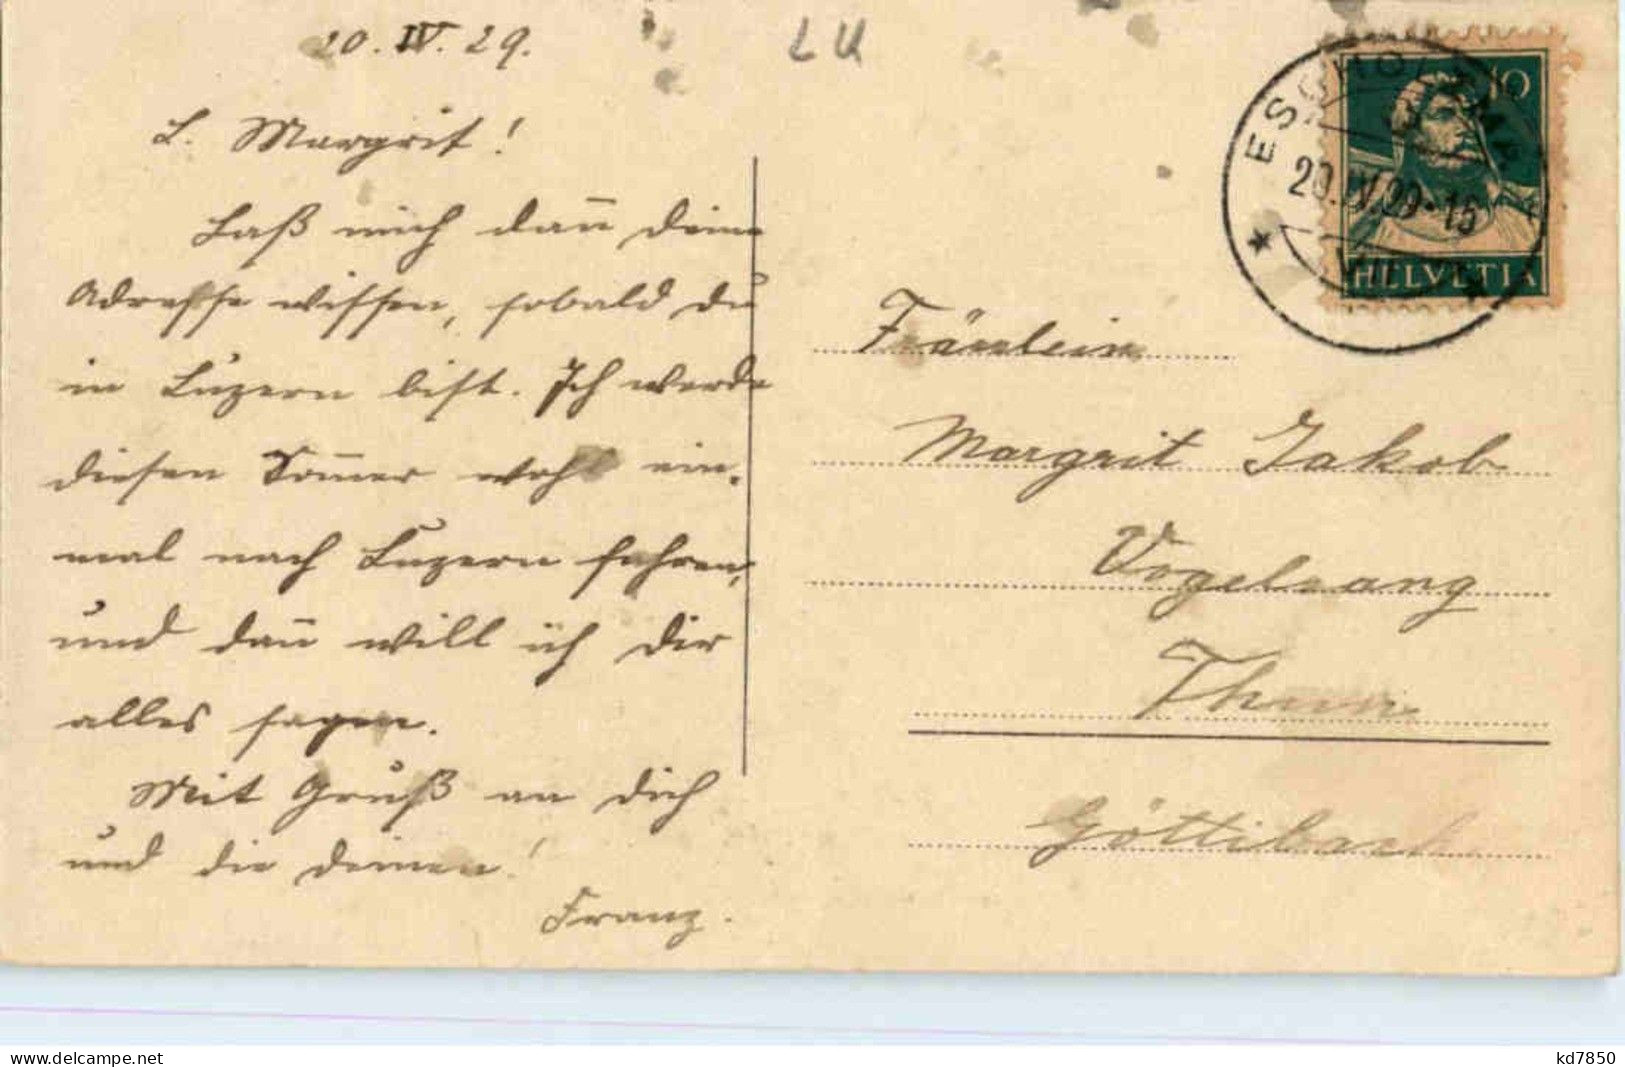 20. IV. 29.
LU
L. Margrit!
Laß mich dan̄ deine
Adresse wissen, sobald du
in Luzern bist. Ich werde
diesen Som̄er wohl ein-
mal nach Luzern fahren,
und dan̄ will ich dir
alles sagen.
Mit Gruß an dich
und die deinen!
Franz.
10
20.IV.29.-15
HELVETIA
Fräulein
Margrit Jakob
Vogelsang
Thun
Göttibach
www.delcampe.net
kd7850